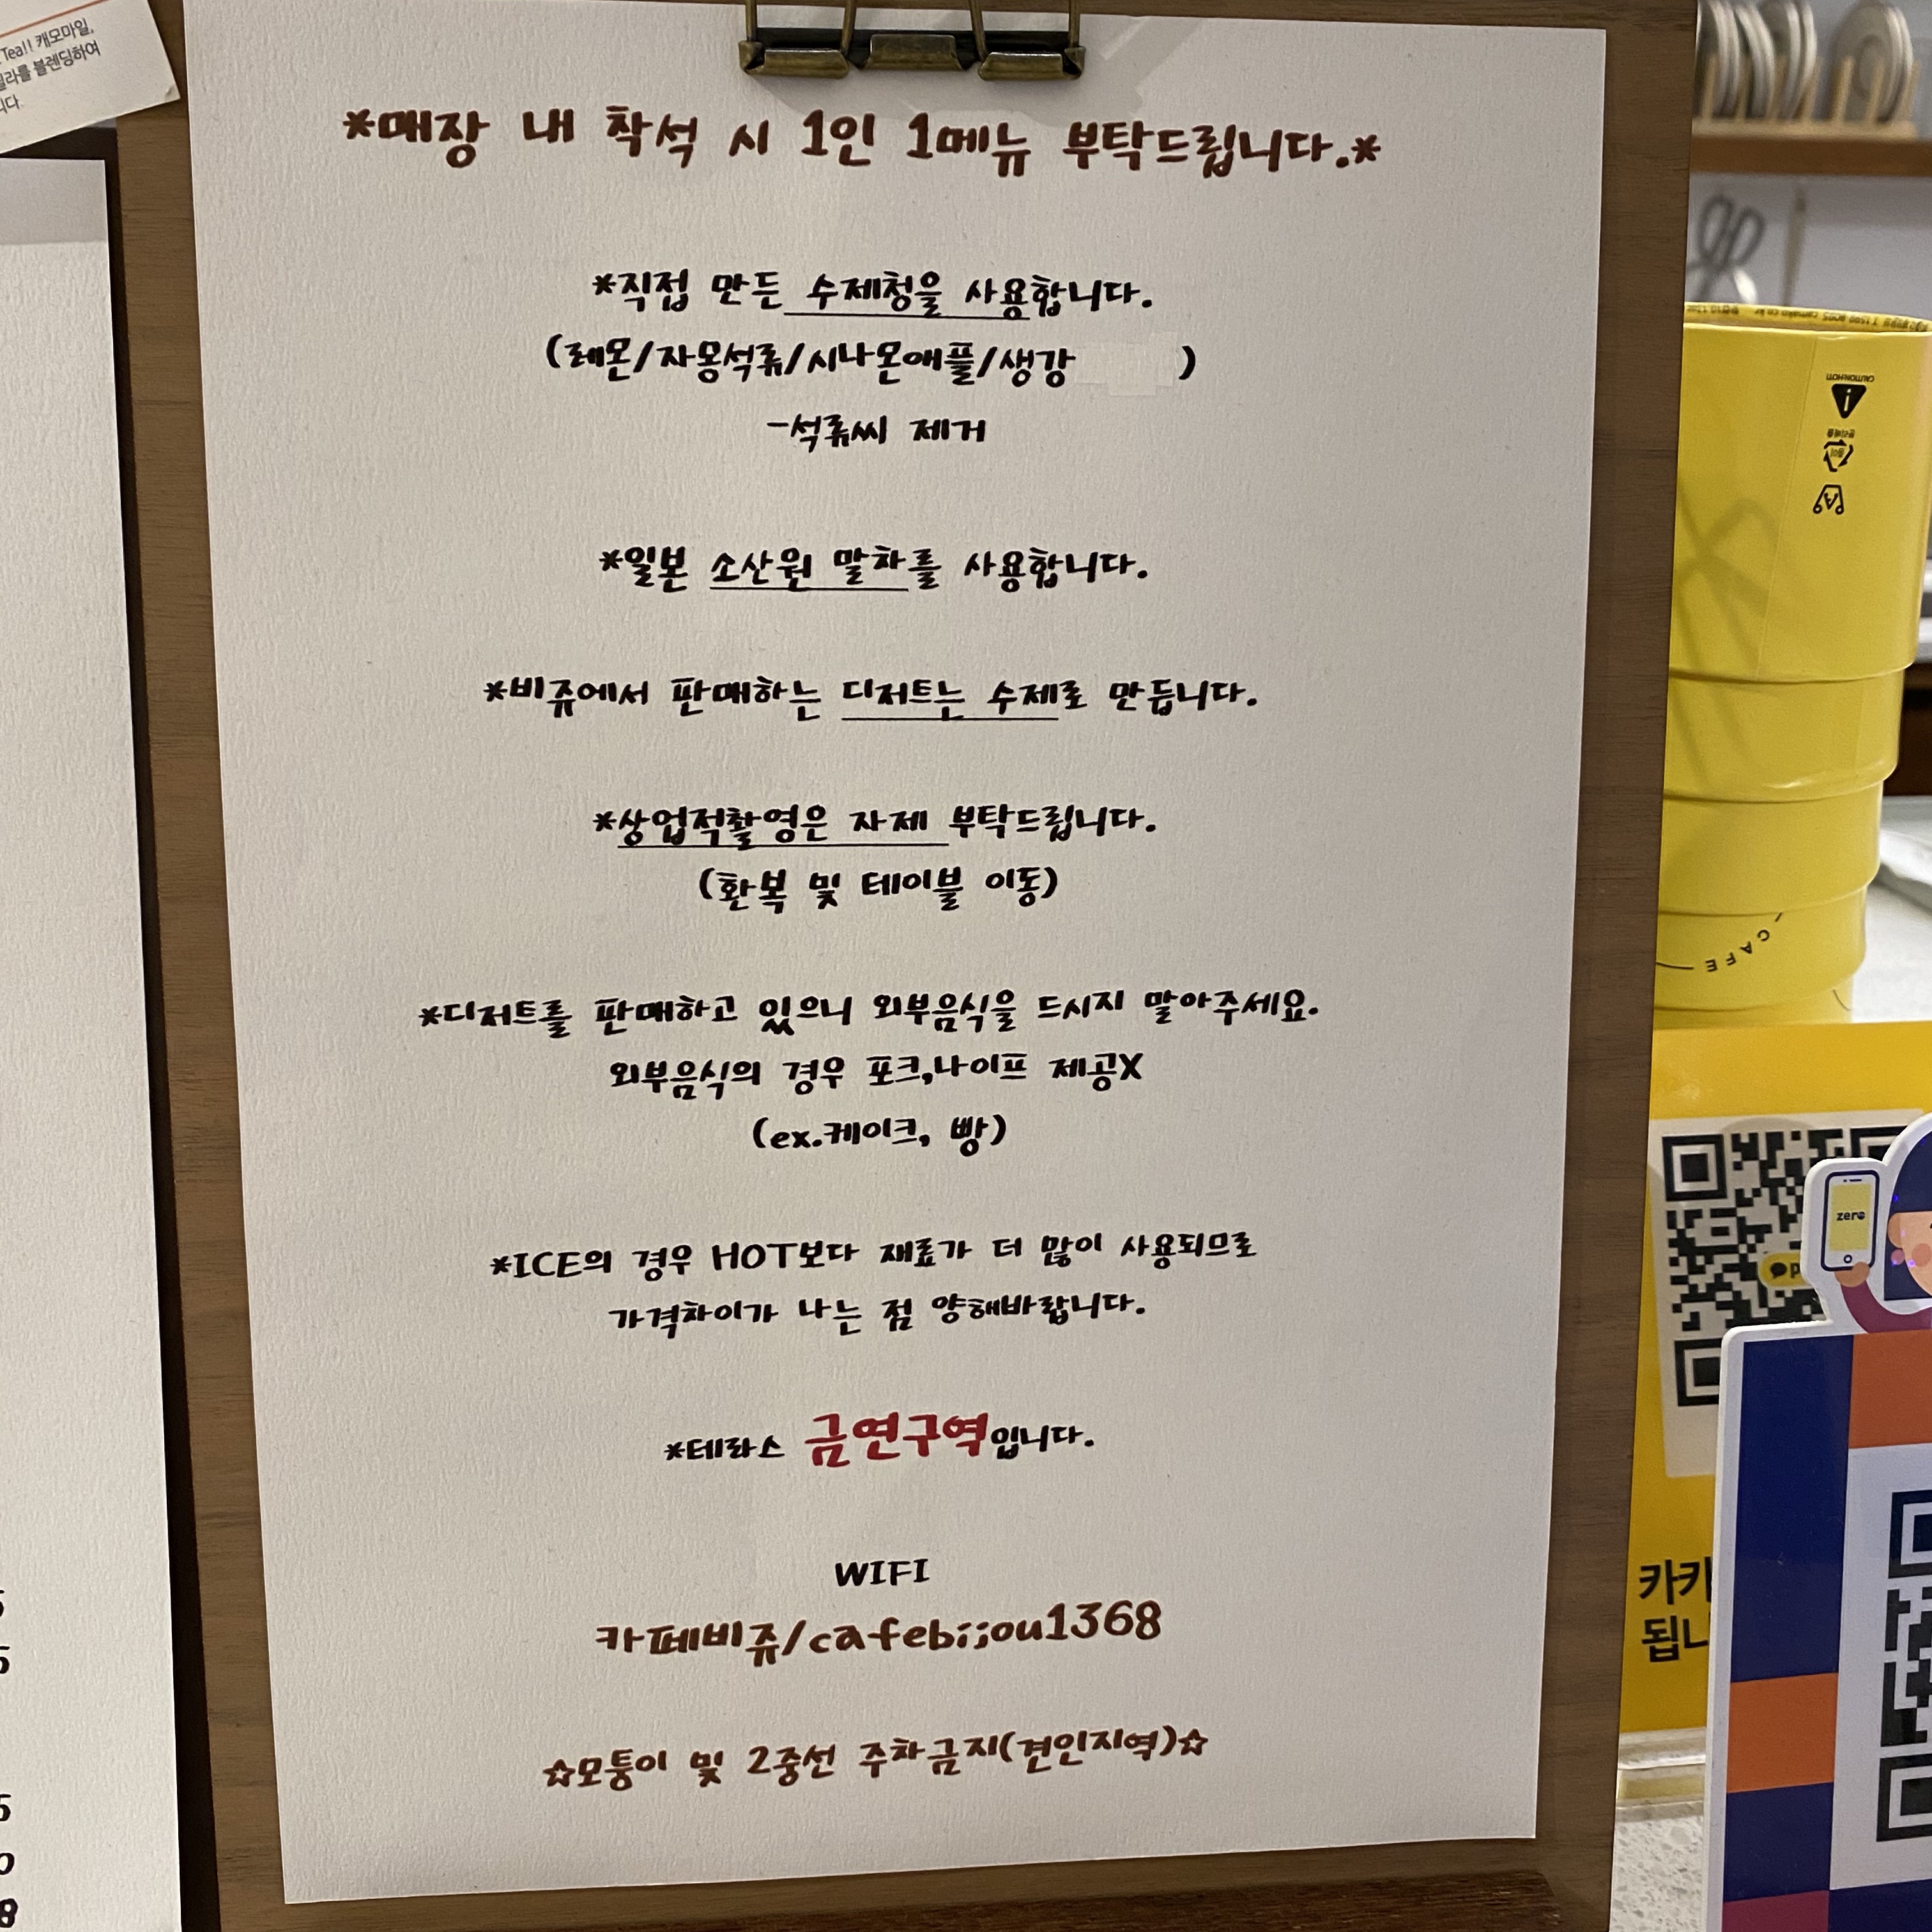 Tea!! 캐모마일,
블렌딩하여
*매장 내 착석 시 1인 1메뉴 부탁드립니다.*
*직접 만든 수제청을 사용합니다.
(레몬/자몽석류/시나몬애플/생강 )
-석류씨 제거
*일본 소산원 말차를 사용합니다.
*비쥬에서 판매하는 디저트는 수제로 만듭니다.
*상업적촬영은 자제 부탁드립니다.
(환복 및 테이블 이동)
*디저트를 판매하고 있으니 외부음식을 드시지 말아주세요.
외부음식의 경우 포크,나이프 제공X
(ex.케이크, 빵)
*ICE의 경우 HOT보다 재료가 더 많이 사용되므로
가격차이가 나는 점 양해바랍니다.
*테라스 금연구역입니다.
WIFI
카페비쥬/cafebijou1368
☆모퉁이 및 2중선 주차금지(견인지역)☆
CAUTION:HOT!
CAFE
zero